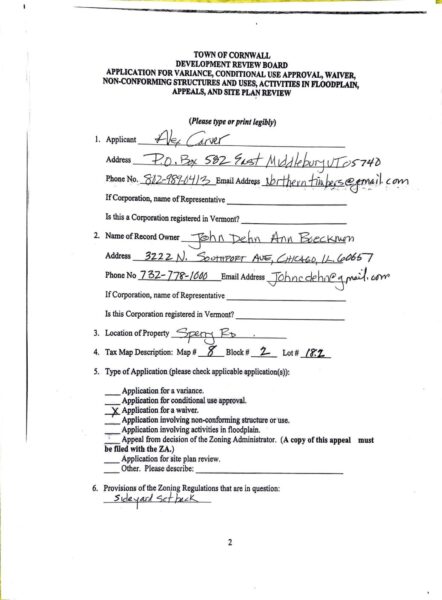 TOWN OF CORNWALL
DEVELOPMENT REVIEW BOARD
APPLICATION FOR VARIANCE, CONDITIONAL USE APPROVAL, WAIVER,
NON-CONFORMING STRUCTURES AND USES, ACTIVITIES IN FLOODPLAIN,
APPEALS, AND SITE PLAN REVIEW
(Please type or print legibly)
1. Applicant Alex Carver
Address P.O. Box 582 East Middlebury VT 05740
Phone No. 812-989-0413 Email Address Northerntimbers@gmail.com
If Corporation, name of Representative
Is this a Corporation registered in Vermont?
2. Name of Record Owner John Dehn Ann Boeckman
Address 3222 N. Southport Ave, Chicago, IL 60657
Phone No 732-778-1000 Email Address Johncdehn@gmail.com
If Corporation, name of Representative
Is this Corporation registered in Vermont?
3. Location of Property Sperry Rd
4. Tax Map Description: Map # 8 Block # 2 Lot # 18.2
5. Type of Application (please check applicable application(s)):
Application for a variance.
Application for conditional use approval.
X Application for a waiver.
Application involving non-conforming structure or use.
Application involving activities in floodplain.
Appeal from decision of the Zoning Administrator. (A copy of this appeal must
be filed with the ZA.)
Application for site plan review.
Other. Please describe:
6. Provisions of the Zoning Regulations that are in question:
Sideyard Setback
2